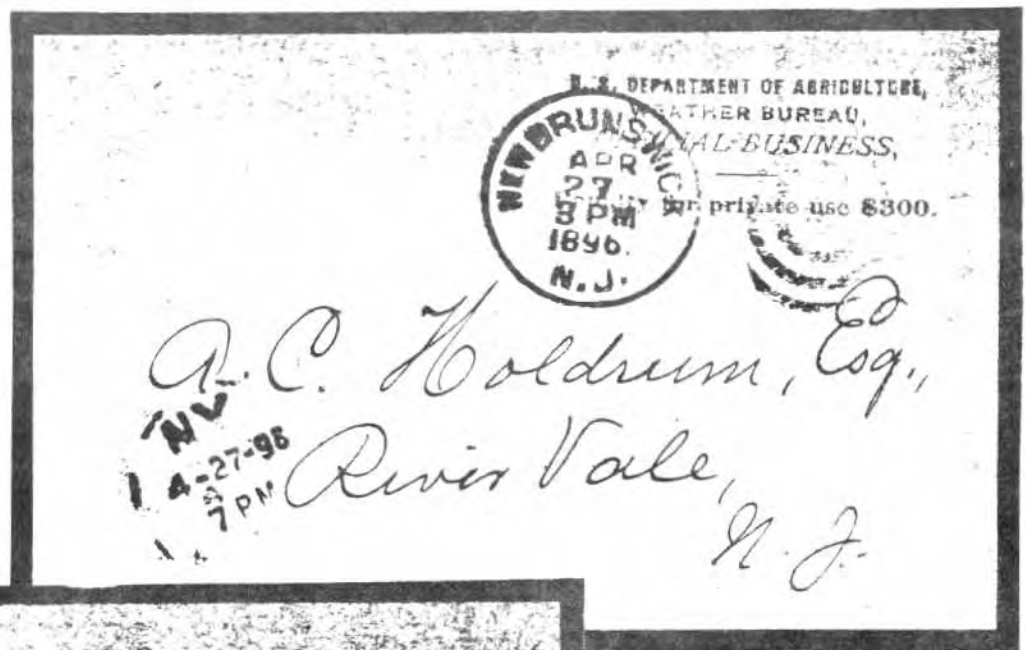 U. S. DEPARTMENT OF AGRICULTURE,
WEATHER BUREAU,
OFFICIAL BUSINESS,
Penalty for private use $300.
NEW BRUNSWICK
APR
27
3 PM
1896.
N.J.
A. C. Holdrum, Esq.,
River Vale,
N. J.
NY
4-27-96
7 PM